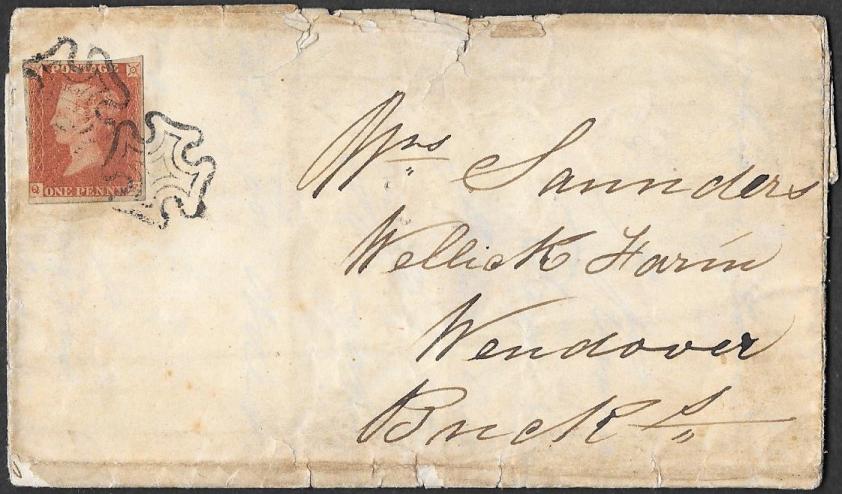 POSTAGE
Q
ONE PENNY
Mrs Saunders
Wellick Farm
Wendover
Bucks